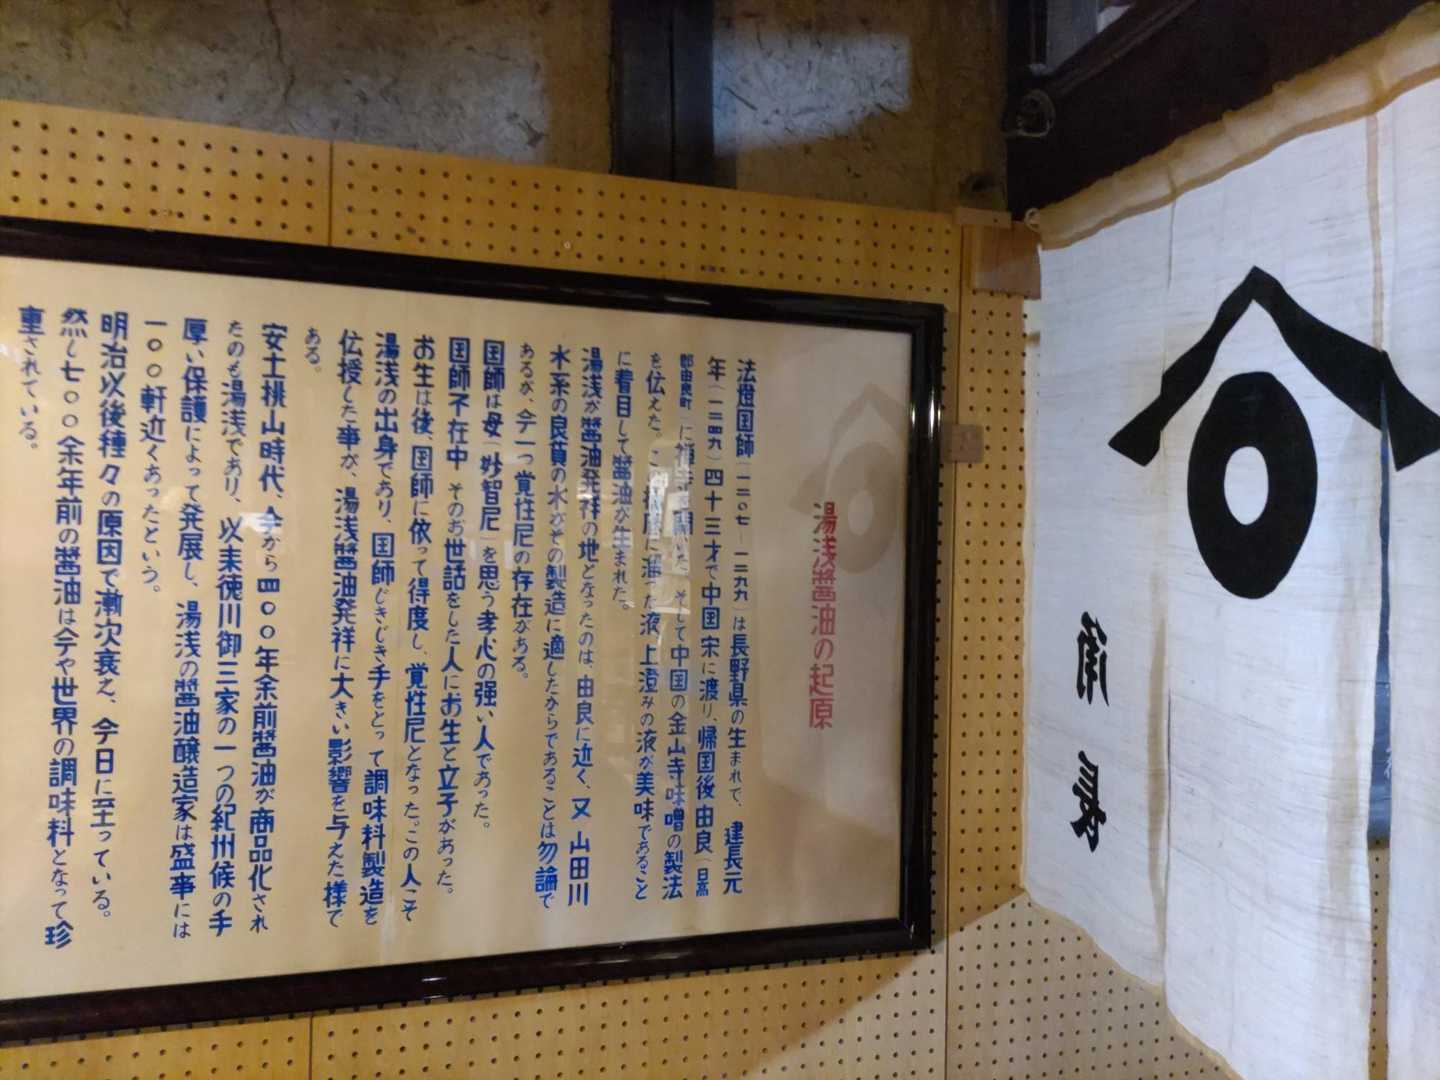 湯浅醤油の起原
法燈国師(一二〇七-一二九九)は長野県の生まれで、建長元
年(一二四九)四十三才で中国 宋に渡り、帰国後 由良(日高
郡由良町)に禅寺を開いた。そして中国の金山寺味噌の製法
を伝えた。この樽底に溜った液、上澄みの液が美味であること
に着目して醤油が生まれた。
湯浅が醤油発祥の地となったのは、由良に近く、又 山田川
水系の良質の水がその製造に適したからであることは勿論で
あるが、今一つ覚性尼の存在がある。
国師は母(妙智尼)を思う孝心の强い人であった。
国師不在中 そのお世話をした人にお生と立子があった。
お生は後、国師に依って得度し、覚性尼となった。この人こそ
湯浅の出身であり、国師じきじき手をとって調味料製造を
伝授した事が、湯浅醤油発祥に大きい影響を与えた様で
ある。
安土桃山時代、今から四〇〇年余前醤油が商品化され
たのも湯浅であり、以来徳川御三家の一つの紀州候の手
厚い保護によって発展し、湯浅の醤油醸造家は盛事には
一〇〇軒近くあったという。
明治以後種々の原因で漸次衰え、今日に至っている。
然し七〇〇余年前の醤油は今や世界の調味料となって珍
重されている。
角長